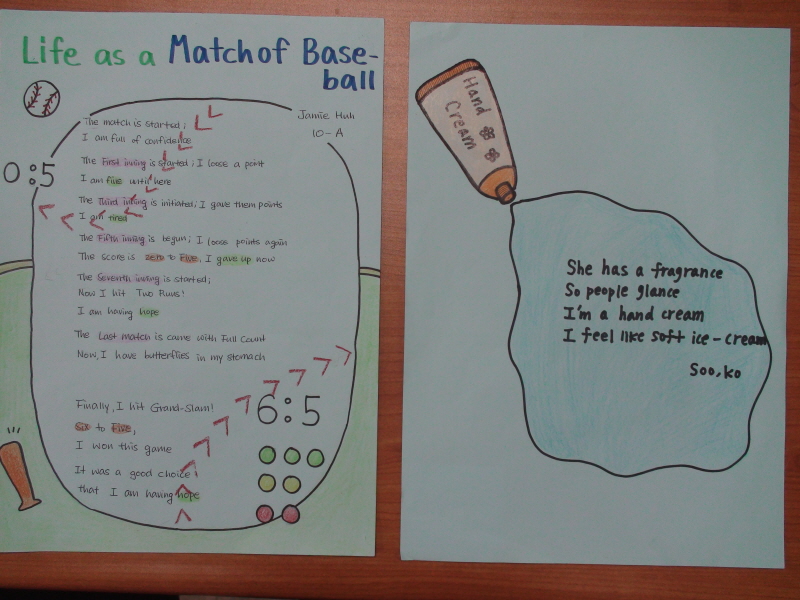 Life as a Match of Base-
ball
Jamie Huh
10-A
The match is started;
I am full of confidence
0:5
The First inning is started; I loose a point
I am five until here
The Third inning is initiated; I gave them points
I am tired
The Fifth inning is begun; I loose points again
The score is zero to Five, I gave up now
The Seventh inning is started;
Now I hit Two Runs!
I am having hope
The Last match is came with Full Count
Now, I have butterflies in my stomach
Finally, I hit Grand-Slam!
6:5
Six to Five,
I won this game
It was a good choice!
that I am having hope
Hand
Cream
She has a fragrance
So people glance
I'm a hand cream
I feel like soft ice-cream
Soo, ko